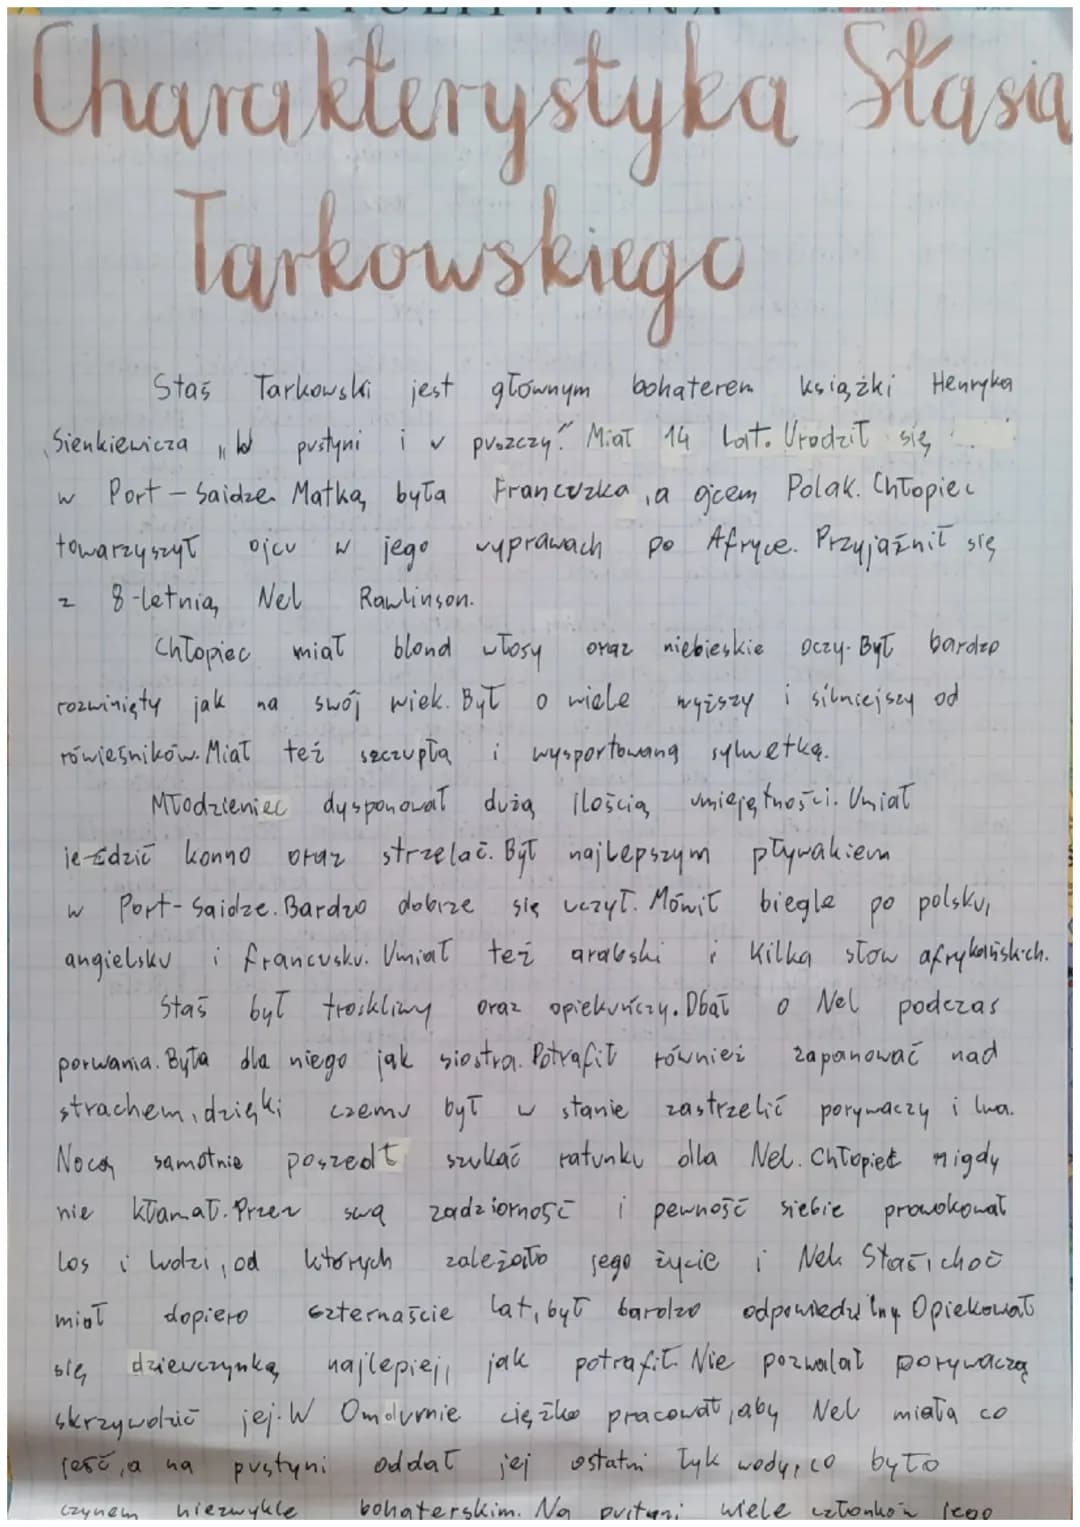 Charakterystyka Stasia
Tarkowskiego
Staś Tarkowski jest głównym bohaterem książki Henryka
Sienkiewicza „W pustyni i w puszczy". Miał 14 lat. Urodził się
w Port-Saidze. Matką była Francuzka, a ojcem Polak. Chłopiec
towarzyszył ojcu w jego wyprawach po Afryce. Przyjaźnił się
z 8-letnią Nel Rawlinson.
Chłopiec miał blond włosy oraz niebieskie oczy. Był bardzo
rozwinięty jak na swój wiek. Był o wiele wyższy i silniejszy od
rówieśników. Miał też szczupłą i wysportowaną sylwetkę.
Młodzieniec dysponował dużą ilością umiejętności. Umiał
jeździć konno oraz strzelać. Był najlepszym pływakiem
w Port-Saidze. Bardzo dobrze się uczył. Mówił biegle po polsku,
angielsku i francusku. Umiał też arabski i kilka słów afrykańskich.
Staś był troskliwy oraz opiekuńczy. Dbał o Nel podczas
porwania. Była dla niego jak siostra. Potrafił również zapanować nad
strachem, dzięki czemu był w stanie zastrzelić porywaczy i lwa.
Nocą samotnie poszedł szukać ratunku dla Nel. Chłopiec nigdy
nie kłamał. Przez swą zadziorność i pewność siebie prowokował
los i ludzi, od których zależało jego życie i Nel. Staś, choć
miał dopiero czternaście lat, był bardzo odpowiedzialny. Opiekował
się dziewczynką najlepiej, jak potrafił. Nie pozwalał porywaczą
skrzywdzić jej. W Omdurnie ciężko pracował, aby Nel miała co
jeść, a na pustyni oddał jej ostatni łyk wody, co było
czynem niezwykle bohaterskim. Na pustyni wiele członków jego